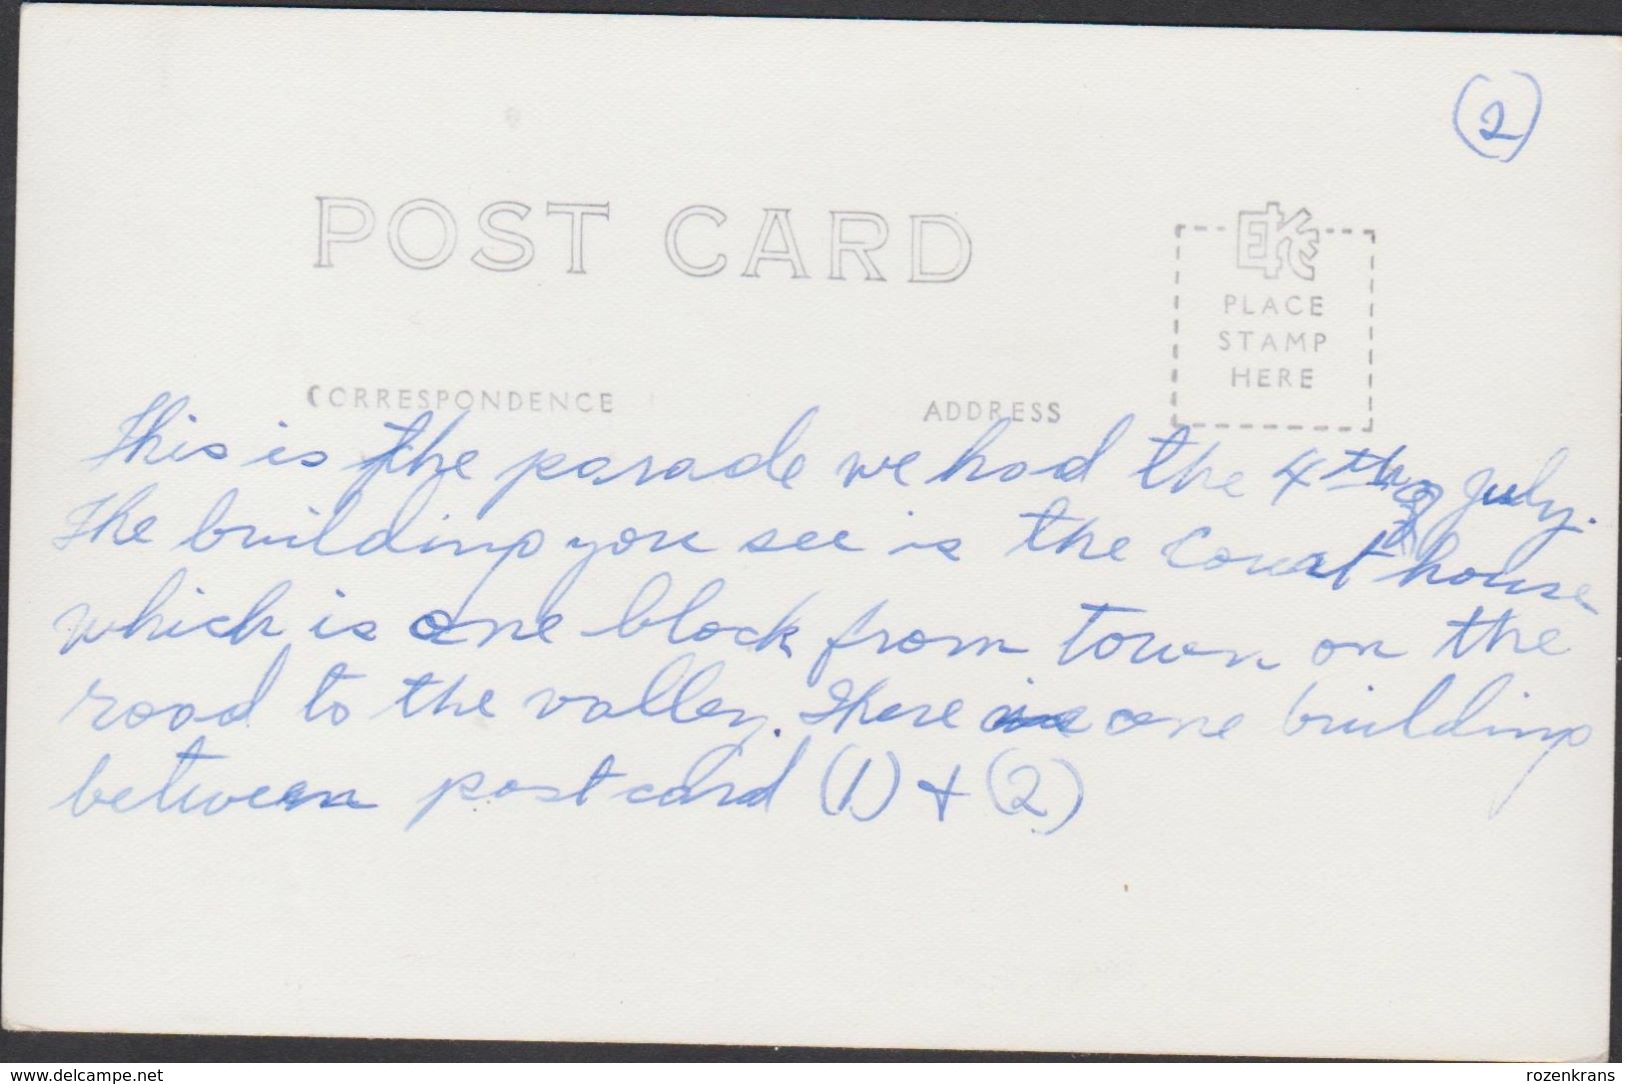 (2)
POST CARD
EKC
PLACE
STAMP
HERE
CORRESPONDENCE
ADDRESS
This is the parade we had the 4th of July.
The building you see is the Court house
which is one block from town on the
road to the valley. There is one building
between postcard (1) + (2)
www.delcampe.net
rozenkrans